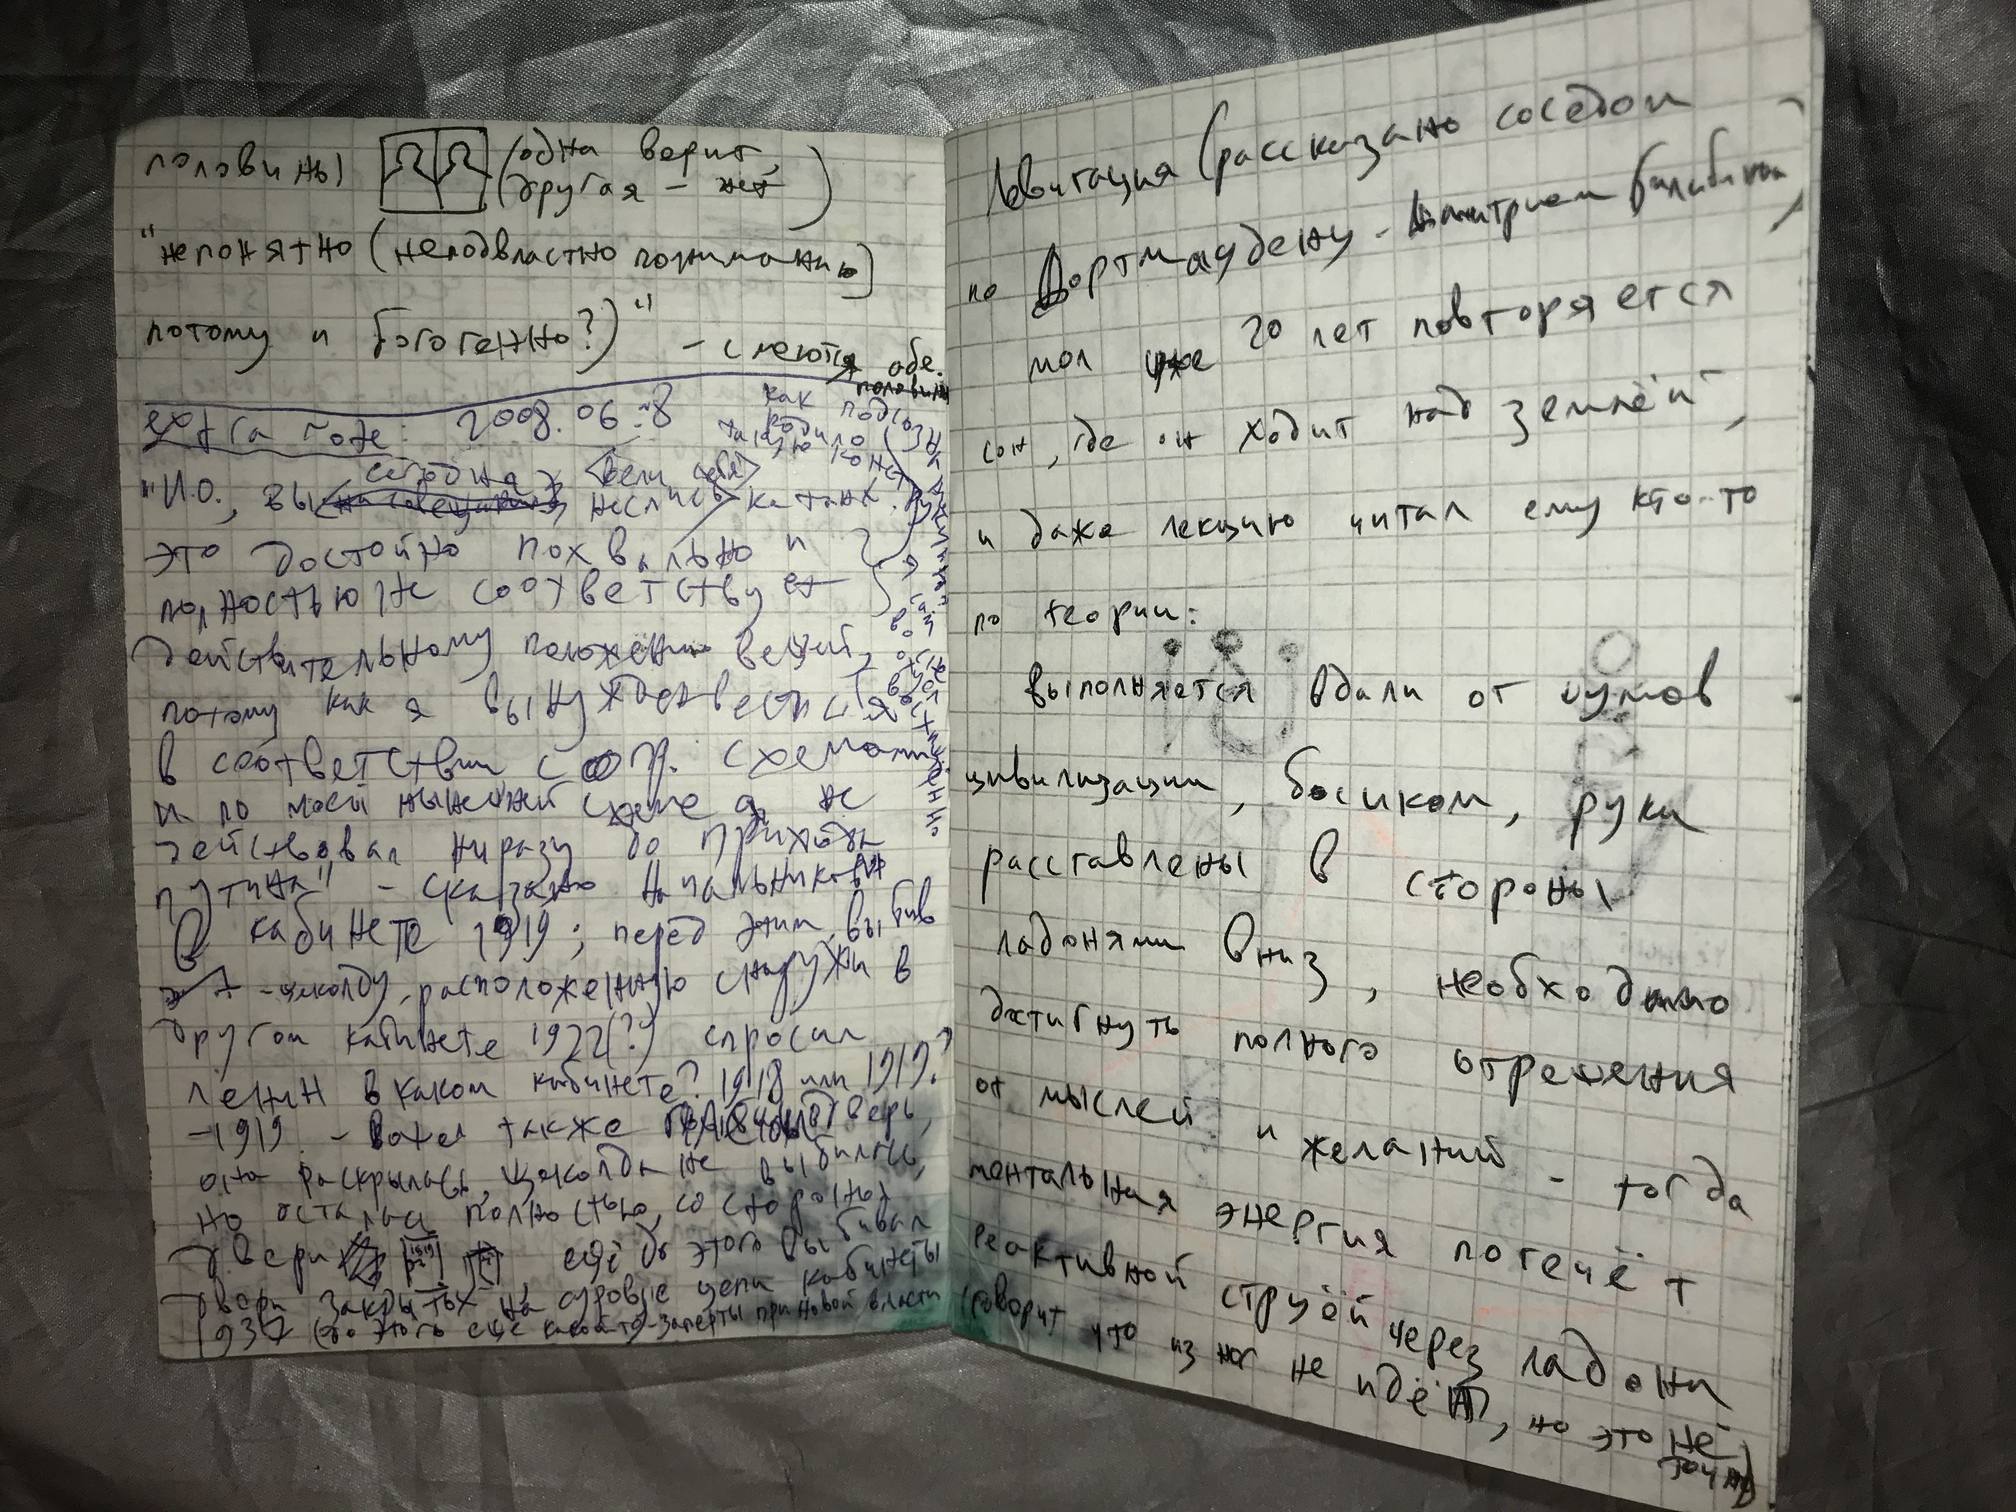 половины (одна верит,
другая – нет)
"непонятно (неподвластно пониманию)
потому и богогенно?)" – смеются обе
половины
extra note: 2008.06.28
как подсо
сегодня <вели себя>
"И.О., вы неслись
это достойно похвально и
полностью же соответствует
действительному положению вещей,
потому как я вынужден вестись
в соответствии с схемами
и по моей нынешней схеме я не
действовал ни разу до прихода
Путина" – сказано начальником
в кабинете 1919; перед этим выбив
щеколду, расположенную снаружи в
другом кабинете 1922(?) спросил
Ленин в каком кабинете? 1918 или 1919?
–1919. – также дверь,
она раскрылась, щеколда не выбилась,
но осталась полностью, со стороны
двери ещё до этого выбивал
двери закрытых на суровые цепи кабинеты
1937 (до этого ещё какой-то – заперты при новой власти
Левитация (рассказано соседом
по Дортмаудену – Дмитрием Билибиным)
мол уже 20 лет повторяется
сон, где он ходит над землёй,
и даже лекцию читал ему кто-то
по теории:
выполняется вдали от шумов
цивилизации, босиком, руки
расставлены в стороны
ладонями вниз, необходимо
достигнуть полного отрешения
от мыслей и желаний – тогда
ментальная энергия потечёт
реактивной струёй через ладони
(говорит что из ног не идёт, но это не
точно)